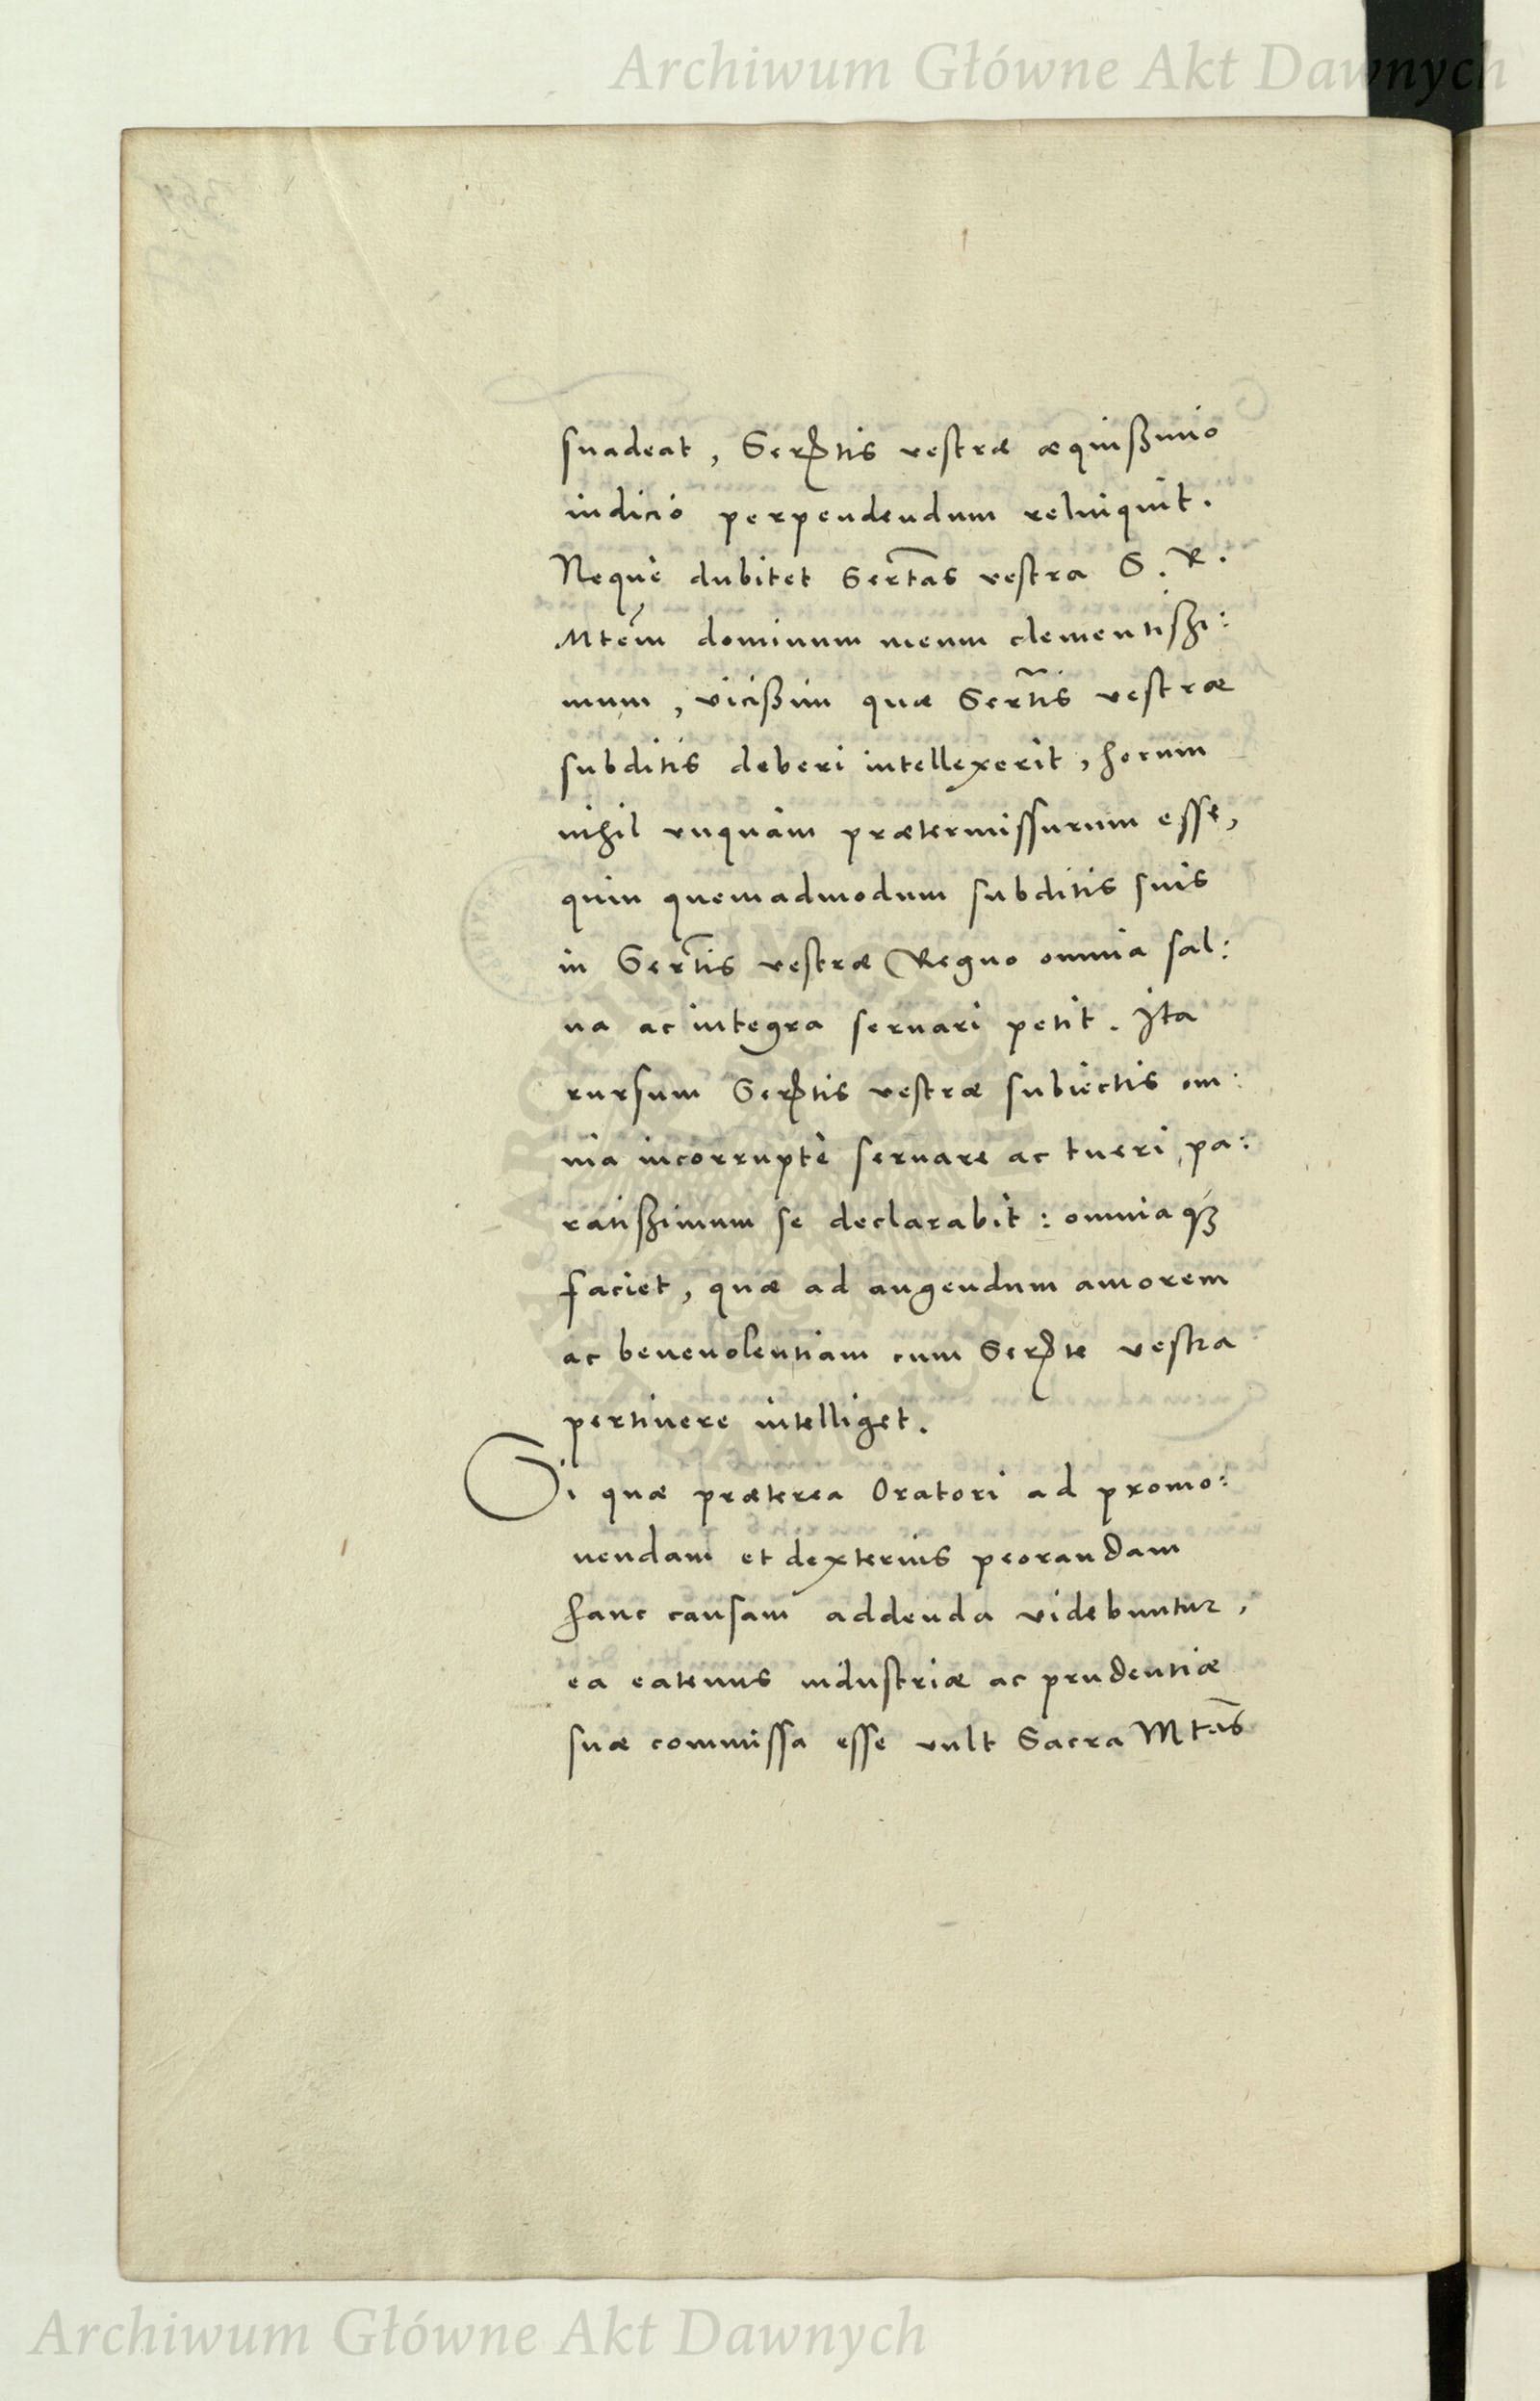 Archiwum Główne Akt Dawnych
suadeat, Serẽtis vestræ æquißimo
iudicio perpendendum relinquit.
Neque dubitet Sertãs vestra S. R.
Mtem̃ dominum meum clementißi:
mum, vicißim quæ Sertĩs vestræ
subditis deberi intellexerit, horum
nihil vnquam prætermissurum esse,
quin quemadmodum subditis suis
in Sertĩs vestræ Regno omnia sal:
ua ac integra seruari petit. Ita
rursum Serẽtis vestræ subiectis om:
nia incorruptè seruare ac tueri pa:
ratißimum se declarabit: omniaqꝫ
faciet, quæ ad augendum amorem
ac beneuolentiam cum Serẽte vestra
pertinere intelliget.
Si quæ præterea Oratori ad promo:
uendam et dexterius peorandam
hanc causam addenda videbuntur,
ea eatenus industriæ ac prudentiæ
suæ commissa esse vult Sacra Mtas̃
Archiwum Główne Akt Dawnych